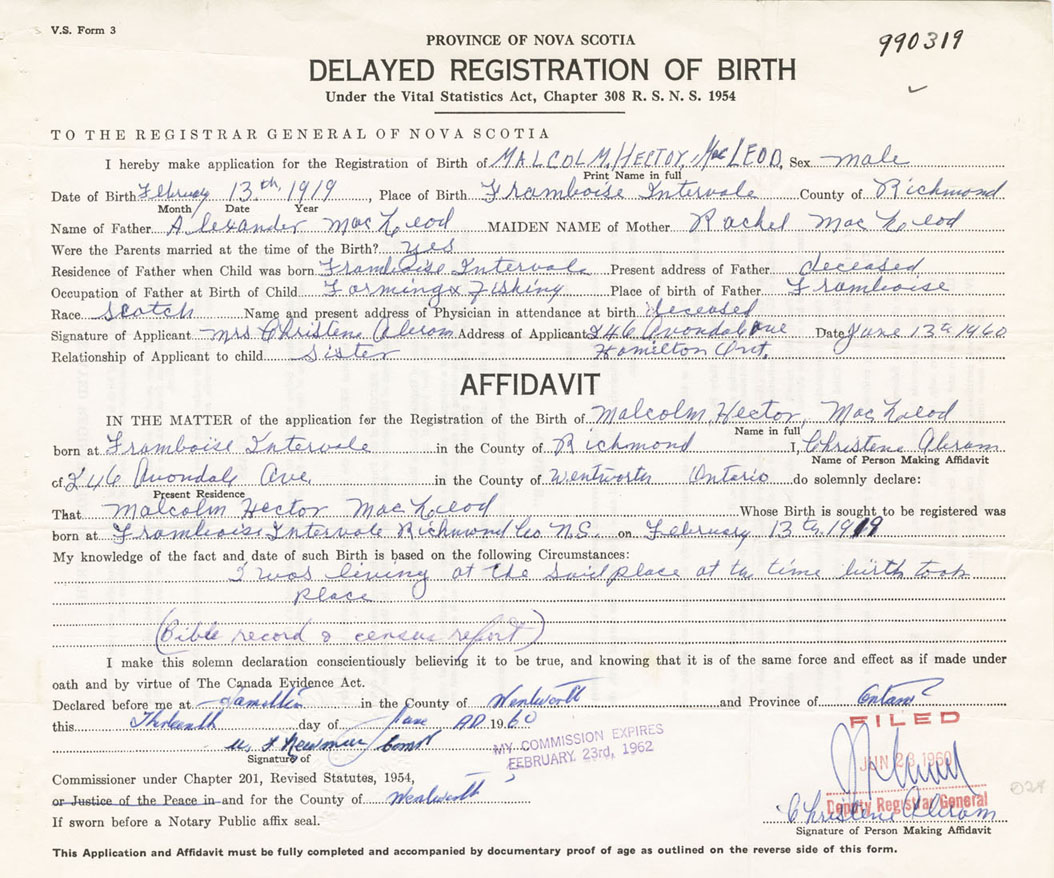 V.S. Form 3
990319
PROVINCE OF NOVA SCOTIA
DELAYED REGISTRATION OF BIRTH
Under the Vital Statistics Act, Chapter 308 R. S. N. S. 1954
TO THE REGISTRAR GENERAL OF NOVA SCOTIA
I hereby make application for the Registration of Birth of MALCOLM, HECTOR, MacLEOD, Sex male
Print Name in full
Date of Birth February 13th, 1919, Place of Birth Framboise Intervale County of Richmond
Month Date Year
Name of Father Alexander MacLeod MAIDEN NAME of Mother Rachel MacLeod
Were the Parents married at the time of the Birth? yes
Residence of Father when Child was born Framboise Intervale Present address of Father deceased
Occupation of Father at Birth of Child Farming & Fishing Place of birth of Father Framboise
Race Scotch Name and present address of Physician in attendance at birth deceased
Signature of Applicant Mrs Christene Abram Address of Applicant 246 Avondale Ave Date June 13 1960
Relationship of Applicant to child Sister Hamilton Ont.
AFFIDAVIT
IN THE MATTER of the application for the Registration of the Birth of Malcolm, Hector, MacLeod
Name in full
born at Framboise Intervale in the County of Richmond I, Christene Abram
Name of Person Making Affidavit
of 246 Avondale Ave. in the County of Wentworth Ontario do solemnly declare:
Present Residence
That Malcolm Hector MacLeod Whose Birth is sought to be registered was
born at Framboise Intervale Richmond Co N.S. on February 13th, 1919
My knowledge of the fact and date of such Birth is based on the following Circumstances:
I was living at the said place at the time birth took
place
(Bible record & census report)
I make this solemn declaration conscientiously believing it to be true, and knowing that it is of the same force and effect as if made under
oath and by virtue of The Canada Evidence Act.
Declared before me at Hamilton in the County of Wentworth and Province of Ontario
this Thirteenth day of June AD 1960
FILED
Newman
MY COMMISSION EXPIRES
FEBRUARY 23rd, 1962
Signature of
JUN 28 1960
Commissioner under Chapter 201, Revised Statutes, 1954,
or Justice of the Peace in and for the County of Wentworth
Deputy Registrar General
Christene Abram
If sworn before a Notary Public affix seal.
Signature of Person Making Affidavit
This Application and Affidavit must be fully completed and accompanied by documentary proof of age as outlined on the reverse side of this form.